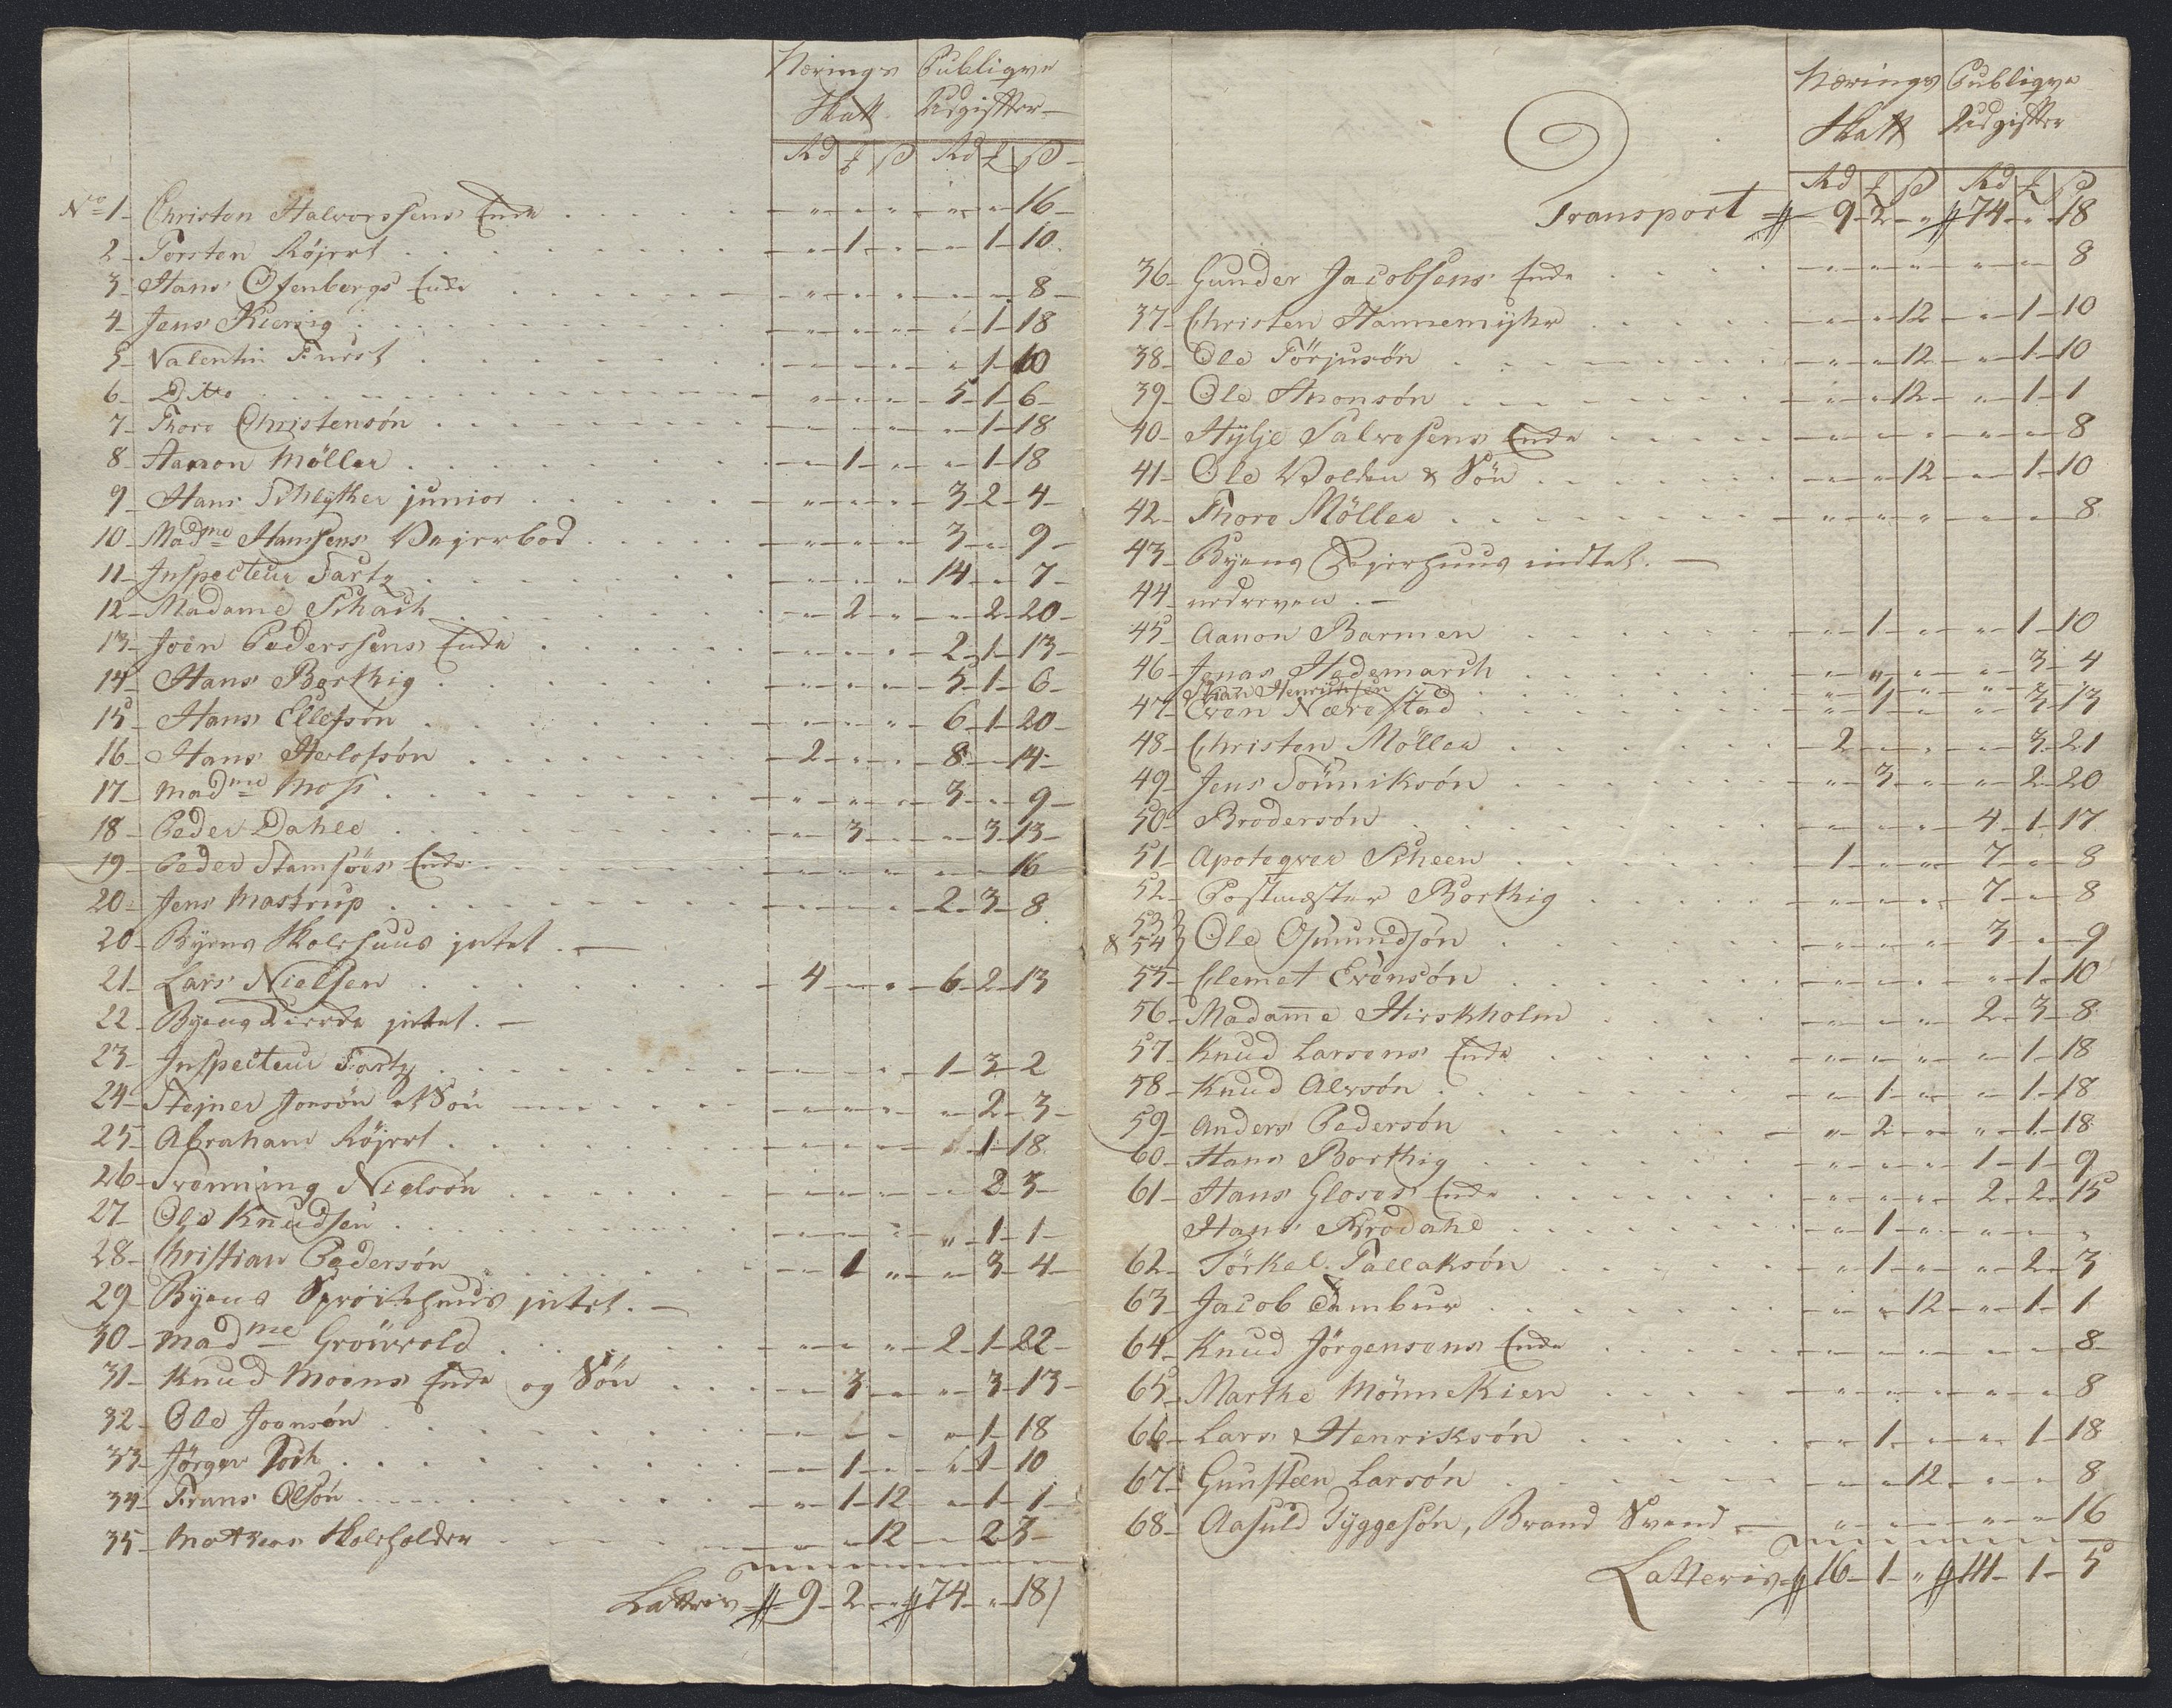 Nærings Publiqve
Skatt Udgifter
Rd ʄ ß Rd ʄ ß
No 1 Christen Halvorssens Enke " " " " " 16
2 Torsten Röjert " 1 " " 1 10
3 Hans Ofenbergs Enke " " " " " 8
4 Jens Kiersig " " " " 1 18
5 Valentin Furst " " " " 1 10
6 Ditto " " " 5 1 6
7 Thore Christensön " " " " 1 18
8 Aamon Möller " 1 " " 1 18
9 Hans Schlÿther junior " " " 3 2 4
10 Madme Hamsens Vejerbod " " " 3 " 9
11 Inspecteur Fartz " " " 14 " 7
12 Madame Schach " 2 " " 2 20
13 Joen Pederssens Enke " " " 2 1 13
14 Hans Borthig " " " 5 1 6
15 Hans Ellefsön " " " 6 1 20
16 Hans Herlofsön 2 " " 8 " 14
17 Madme Moss " " " 3 " 9
18 Peder Dahle " 3 " " 3 13
19 Peder Stamsöes Enke " " " " " 16
20 Jens Mastrup " " " 2 3 8
20 Byens Skolehuus intet.
21 Lars Nielsen 4 " " 6 2 13
22 Byens intet.
23 Inspecteur Fartz " " " 1 3 2
24 Stejner Jonsön et Sön " " " " 2 3
25 Abraham Röjert " " " " 1 18
26 Svenning Nielsön " " " " 2 3
27 Ole Knudsen " " " " 1 1
28 Christian Pedersön " 1 " " 3 4
29 Byens Spröitehuus intet.
30 Madme Grönvold " " " 2 1 22
31 Knud Moens Enke og Sön " 3 " " 3 13
32 Ole Joensön " " " " 1 18
33 Jörgen " 1 " " 1 10
34 Frans Olsön " 1 12 " 1 1
35 Mathias Skoleholder " " 12 " 2 3
Latteris 9 2 " 74 " 18
Nærings Publiqve
Skatt Udgifter
Rd ʄ ß Rd ʄ ß
Transport 9 2 " 74 " 18
36 Gunder Jacobsens Enke " " " " " 8
37 Christen Hannemÿhr " " 12 " 1 10
38 Ole Törjusön " " 12 " 1 10
39 Ole Anonsön " " 12 " 1 1
40 Hÿlje Salvesens Enke " " " " " 8
41 Ole Volden & Sön " " 12 " 1 10
42 Thore Möller " " " " " 8
43 Byens Vejerhuus indtet.
44 nedreven.
45 Aanon Barmen " 1 " " 1 10
46 Jonas Hedemarch " " " " 3 4
Henrichsen " 1 " " " "
47 Even Nærestad " 1 " " 3 13
48 Christen Möller 2 " " " 3 21
49 Jens Tönniksön " 3 " " 2 20
50 Brodersön " " " 4 1 17
51 Apoteqver Scheen 1 " " 7 " 8
52 Postmester Borthig " " " 7 " 8
53 & 54 Ole Osmundsön " " " 3 " 9
55 Clemet Evensön " " " " 1 10
56 Madame Hirskholm " " " 2 3 8
57 Knud Larsens Enke " " " " 1 18
58 Knud Alvsön " 1 " " 1 18
59 Anders Pedersön " 2 " " 1 18
60 Hans Borthig " " " 1 1 9
61 Hans Gloves Enke " " " 2 2 15
Hans Brodahl " 1 " " " "
62 Törkel Tallaksön " 1 " " 2 3
63 Jacob Cambur " " 12 " 1 1
64 Knud Jörgensens Enke " " " " " 8
65 Marthe Mönnekien " " " " " 8
66 Lars Henriksön " 1 " " 1 18
67 Gunsteen Larsön " " 12 " " 8
68 Aasuld Tÿggesön, Brand Svend " " " " " 16
Latteris 16 1 " 111 1 5